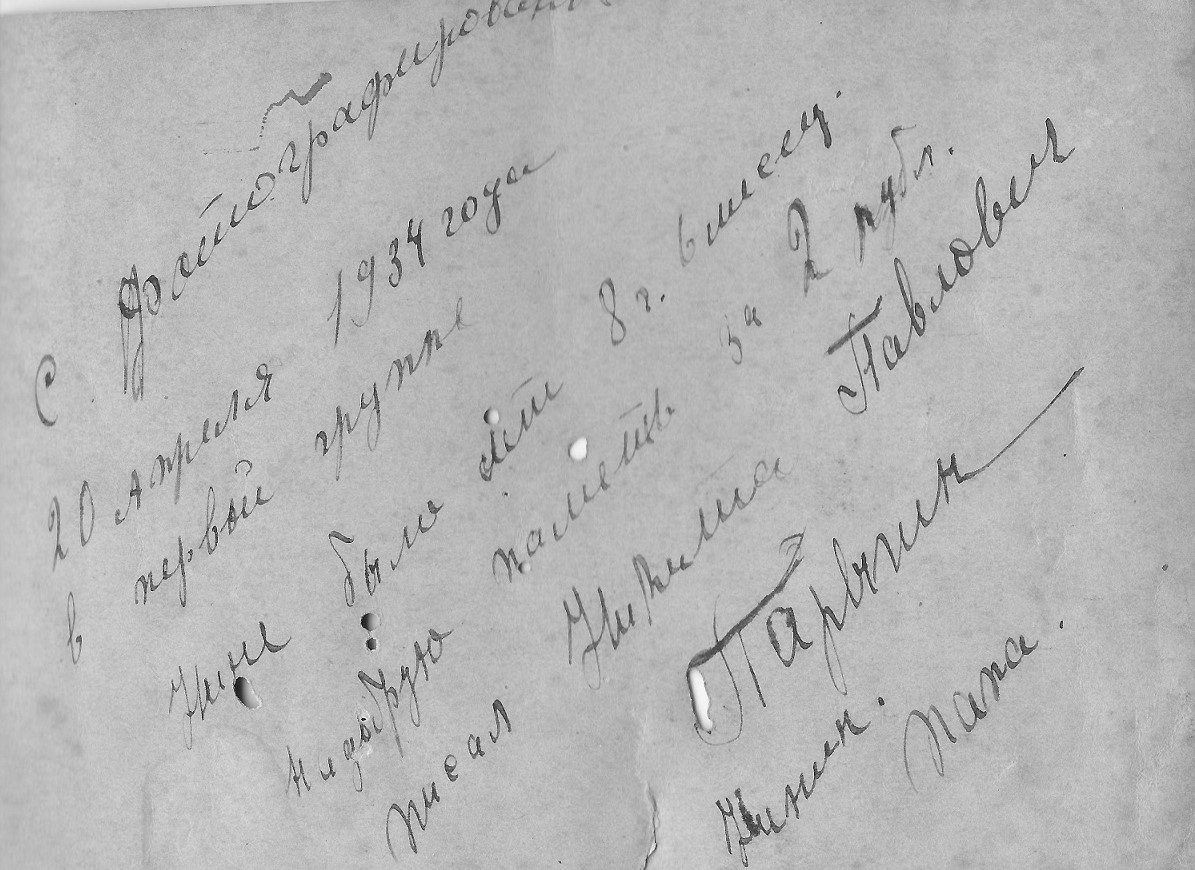 С фотографирован
20 апреля 1934 года
в первой группе
Нине было лет 8 г. 6 месц.
на добрую паметь за 2 рубл.
писал Никита Павлович
Паршин
Нинин. папа.